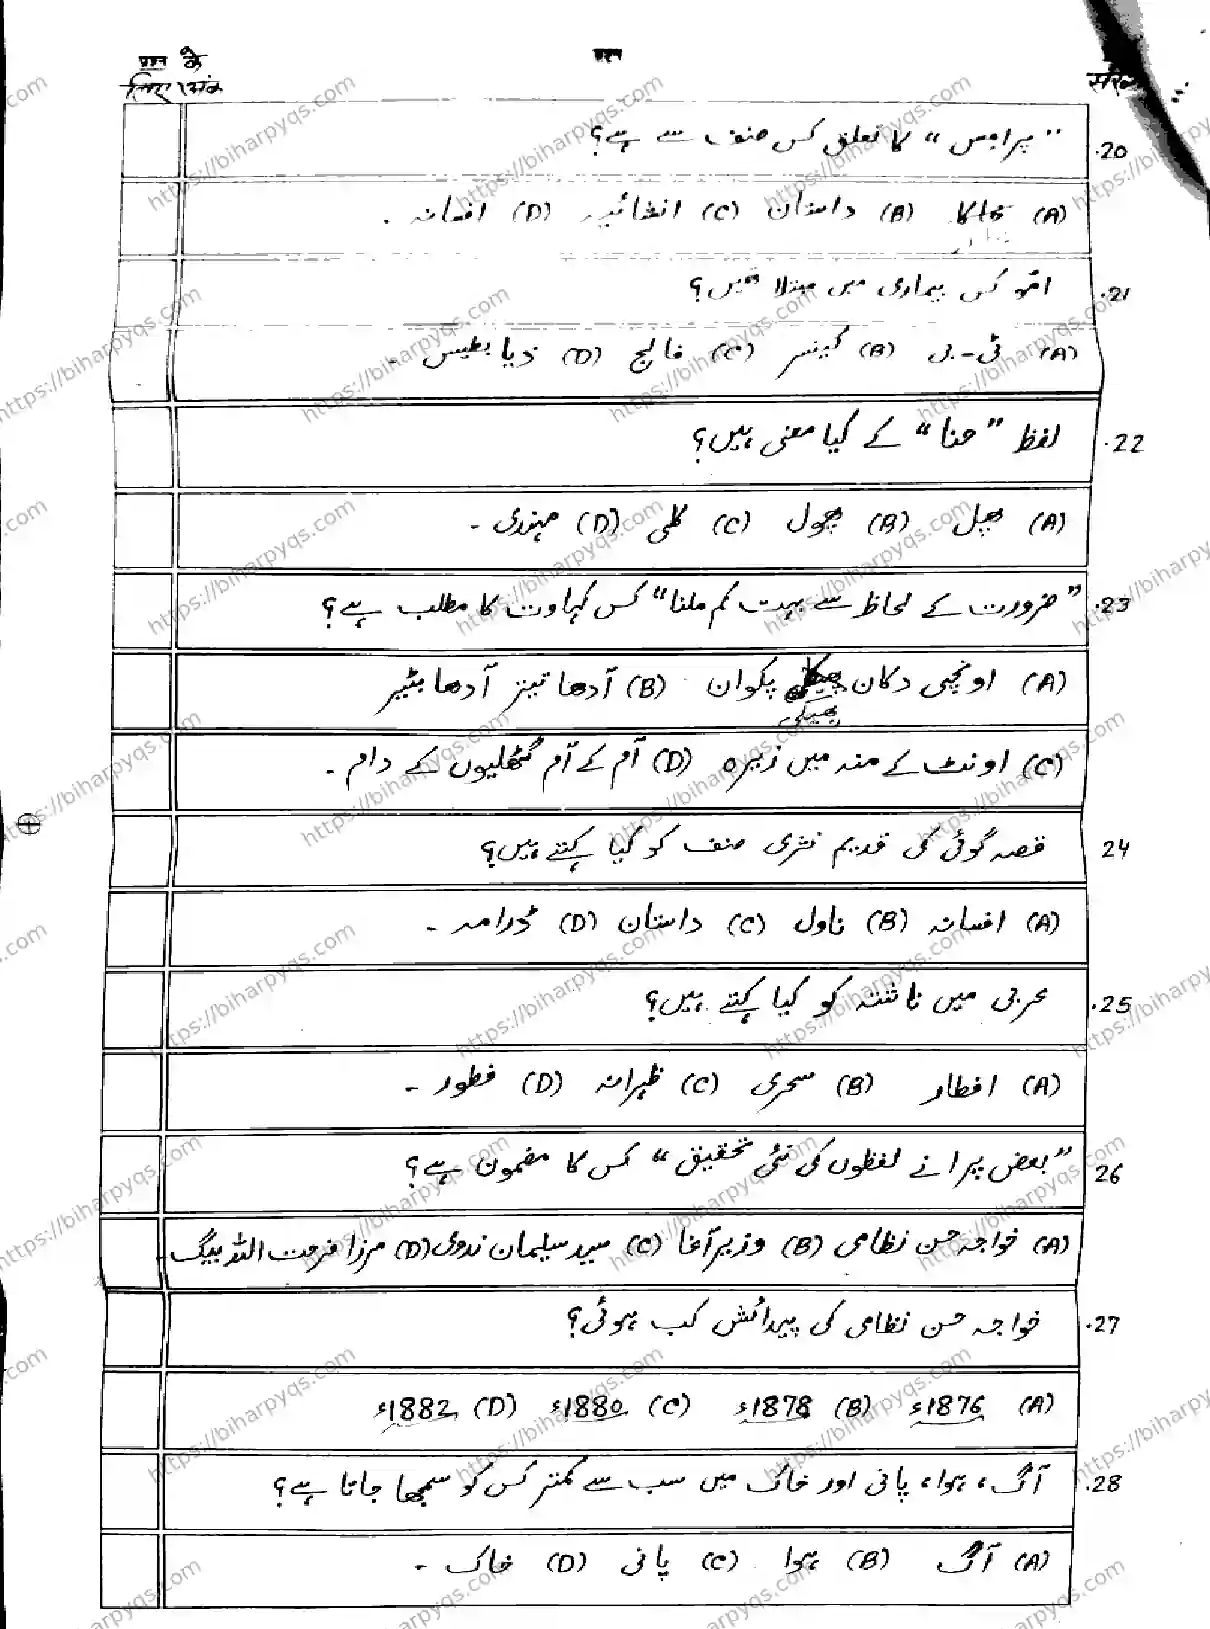 प्रश्न के
लिए अंक
प्रश्न
20. "پرامس" کا تعلق کس صنف سے ہے؟
(A) خاکا (B) داستان (C) انشائیہ (D) افسانہ -
21. امّو کس بیماری میں مبتلا تھیں؟
(A) ٹی-بی (B) کینسر (C) فالج (D) ذیابطیس -
22. لفظ "حنا" کے کیا معنی ہیں؟
(A) پھل (B) پھول (C) کلی (D) مہندی -
23. "ضرورت کے لحاظ سے بہت کم ملنا" کس کہاوت کا مطلب ہے؟
(A) اونچی دکان پھیکی پکوان (B) آدھا تیتر آدھا بٹیر
(C) اونٹ کے منہ میں زیرہ (D) آم کے آم گٹھلیوں کے دام -
24 قصہ گوئی کی قدیم نثری صنف کو کیا کہتے ہیں؟
(A) افسانہ (B) ناول (C) داستان (D) ڈرامہ -
25. عربی میں ناشتہ کو کیا کہتے ہیں؟
(A) افطار (B) سحری (C) ظہرانہ (D) فطور -
26 "بعض پرانے لفظوں کی نئی تحقیق" کس کا مضمون ہے؟
(A) خواجہ حسن نظامی (B) وزیر آغا (C) سید سلیمان ندوی (D) مرزا فرحت اللہ بیگ -
27. خواجہ حسن نظامی کی پیدائش کب ہوئی؟
(A) 1876ء (B) 1878ء (C) 1880ء (D) 1882ء
28. آگ، ہوا، پانی اور خاک میں سب سے کمتر کس کو سمجھا جاتا ہے؟
(A) آگ (B) ہوا (C) پانی (D) خاک -
https://biharpyqs.com